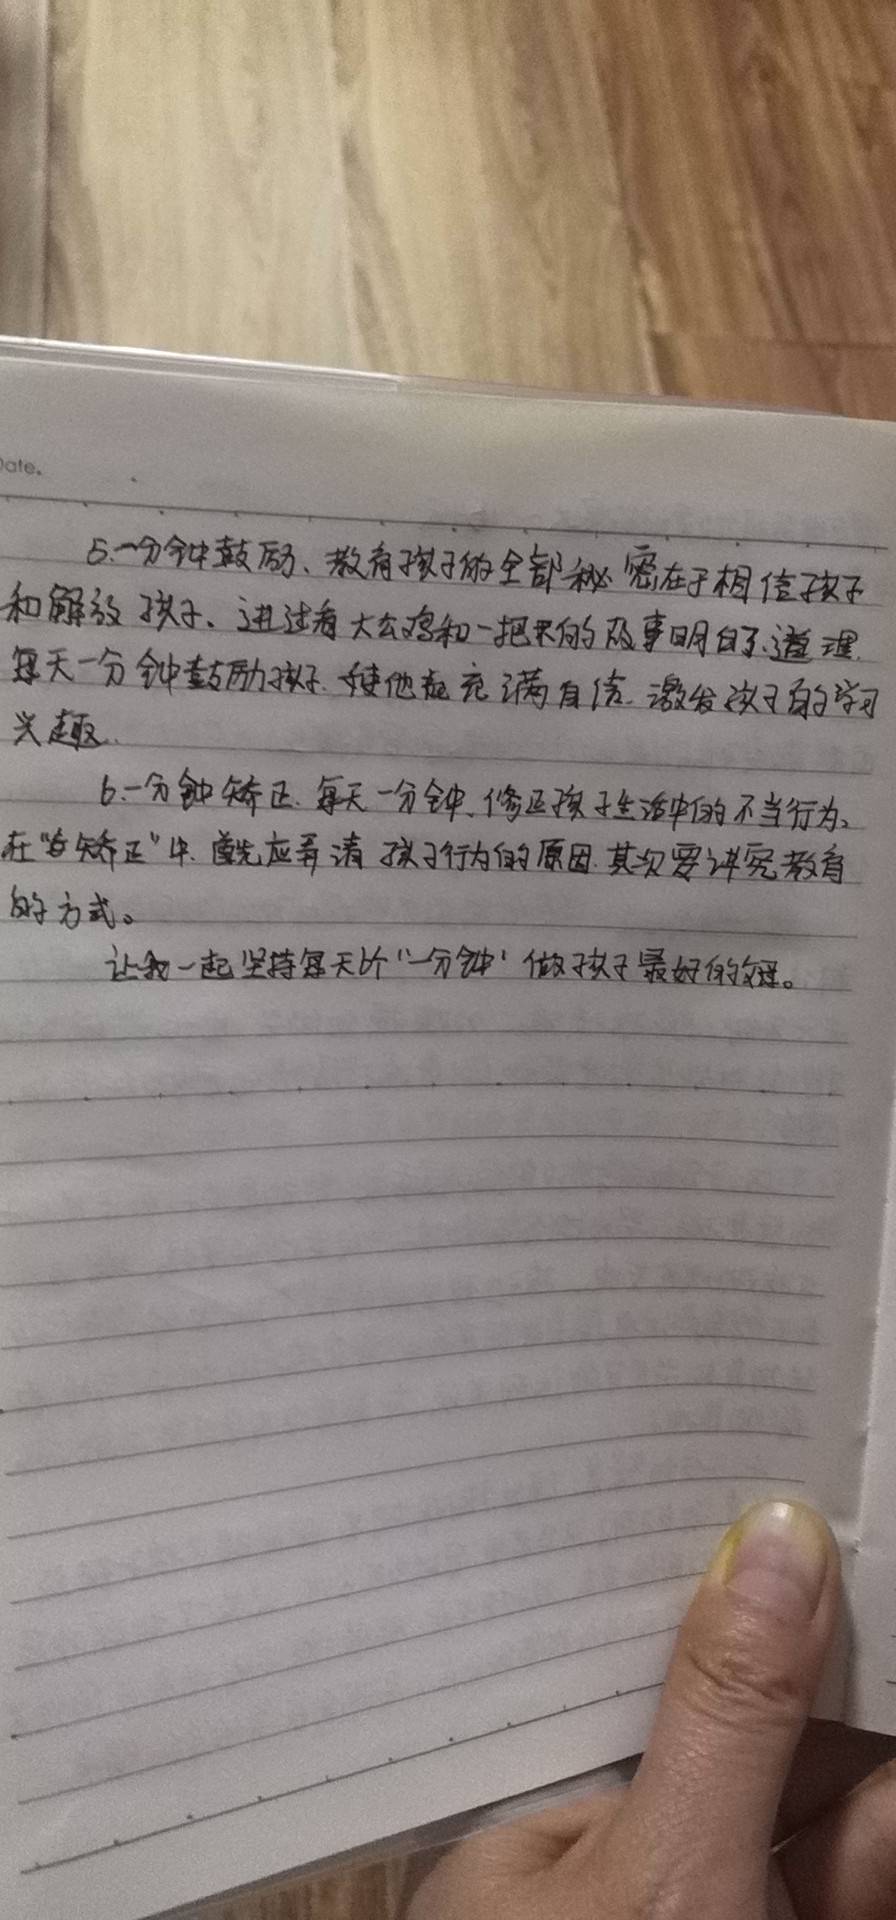 Date.
5.一分钟鼓励、教育孩子的全部秘密在于相信孩子
和解放孩子、进过看大公鸡和一把米的故事明白了道理.
每天一分钟鼓励孩子.使他充满自信.激发孩子的学习
兴趣.
6.一分钟矫正.每天一分钟、修正孩子生活中的不当行为、
在“矫正”中.首先应弄清孩子行为的原因.其次要讲究教育
的方式。
让我一起坚持每天的“一分钟”做孩子最好的父母。